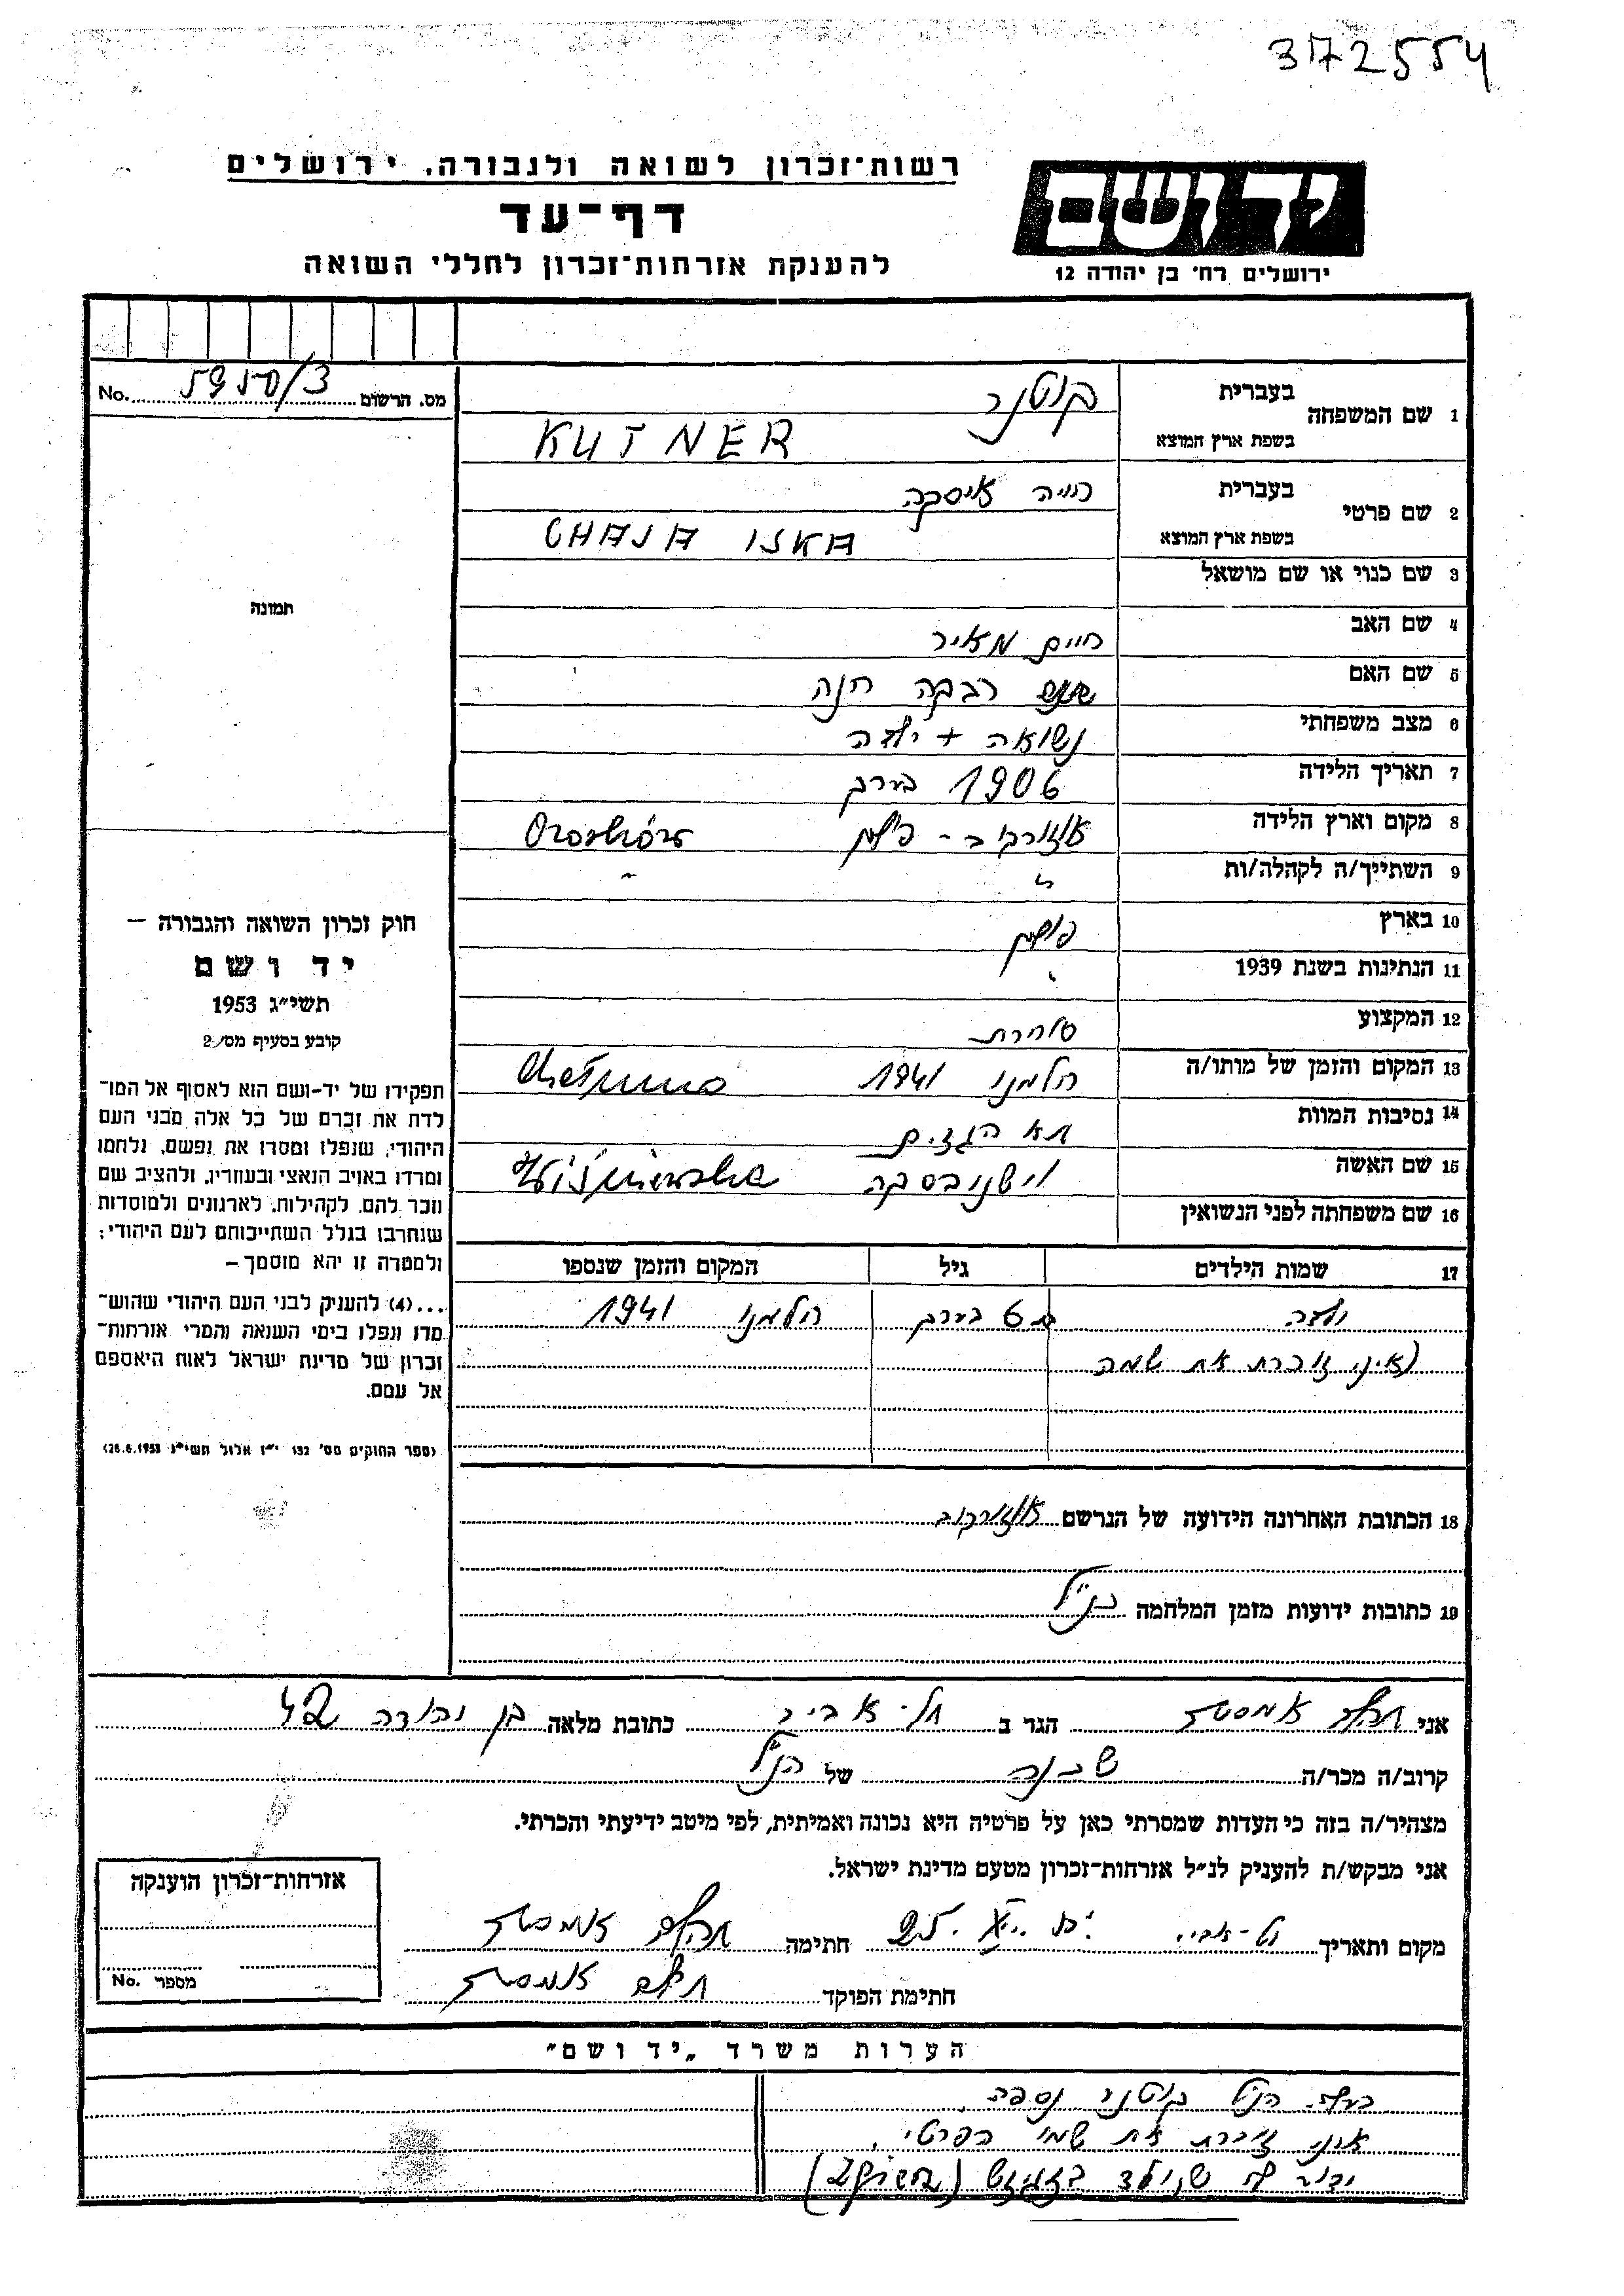 372554
רשות־זכרון לשואה ולגבורה, ירושלים
דף־עד
להענקת אזרחות־זכרון לחללי השואה
יד ושם
ירושלים רח' בן יהודה 12
מס. הרשום 5950/3 No.
1 שם המשפחה
בעברית קוטנר
בשפת ארץ המוצא KUTNER
2 שם פרטי
בעברית חייה איסקה
בשפת ארץ המוצא CHAJA ISKA
3 שם כנוי או שם מושאל
4 שם האב חיים מאיר
5 שם האם רבקה חנה
6 מצב משפחתי נשואה + ילדה
7 תאריך הלידה 1906 בערך
8 מקום וארץ הלידה אוזורקוב - פולין Ozorków
9 השתייך/ה לקהלה/ות "
10 בארץ פולין
11 הנתינות בשנת 1939 "
12 המקצוע סוחרת
13 המקום והזמן של מותו/ה חלמנו 1941 Chełmno
14 נסיבות המוות תא הגזים
15 שם האשה וישניבסקה Wiśniewska
16 שם משפחתה לפני הנשואין
17 שמות הילדים גיל המקום והזמן שנספו
ילדה 6 בערך חלמנו 1941
(אינני זוכרת את שמה
18 הכתובת האחרונה הידועה של הנרשם אוזורקוב
19 כתובות ידועות מזמן המלחמה כנ"ל
תמונה
חוק זכרון השואה והגבורה —
יד ושם
תשי"ג 1953
קובע בסעיף מס. 2
תפקידו של יד־ושם הוא לאסוף אל המו־
לדת את זכרם של כל אלה מבני העם
היהודי, שנפלו ומסרו את נפשם, נלחמו
ומרדו באויב הנאצי ובעוזריו, ולהציב שם
וזכר להם, לקהילות, לארגונים ולמוסדות
שנחרבו בגלל השתייכותם לעם היהודי;
ולמטרה זו יהא מוסמך —
...(4) להעניק לבני העם היהודי שהוש־
מדו ונפלו בימי השואה והמרי אזרחות־
זכרון של מדינת ישראל לאות היאספם
אל עמם.
(ספר החוקים מס' 132 י"ז אלול תשי"ג 28.8.1953)
אני הגר ב תל-אביב כתובת מלאה בן יהודה 42
קרוב/ה מכר/ה שכנה של הנ"ל
מצהיר/ה בזה כי העדות שמסרתי כאן על פרטיה היא נכונה ואמיתית, לפי מיטב ידיעתי והכרתי.
אני מבקש/ת להעניק לנ"ל אזרחות־זכרון מטעם מדינת ישראל.
מקום ותאריך חתימה
חתימת הפוקד
אזרחות־זכרון הוענקה
מספר No.
הערות משרד „יד ושם"
הנ"ל קוטנר נספה
אינני זוכרת את שמו הפרטי,